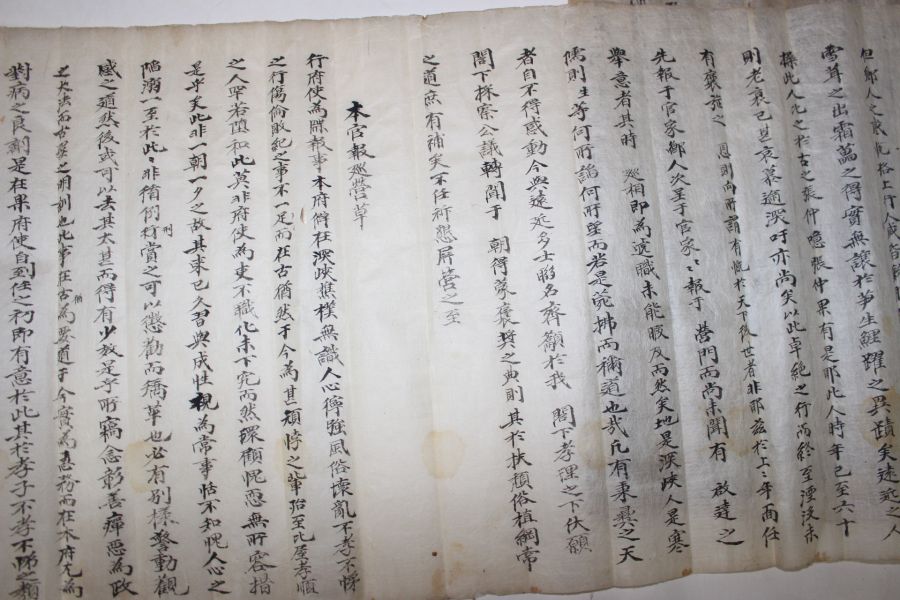 雪茸之出霜萬之得實無讓於笋生鯉躍之異蹟矣遠近之人
操此人尤之於古之張仲噫張仲果有是耶此人時年已至六十
則老衰已甚哀慕過深吁亦尚矣以此卓絶之行尚終至湮沒未
有褒旌之 恩則向所謂有愧於天下後世者非耶玆於上上年面任
先報于官家鄉人次呈于官家官家報于 營門而尚未聞有 啟達之
舉意者其時 巡相即為遞職未能暇及而然矣地是深峽人是寒
儒則生等何所諂何所望而若是冤拂而稱道也哉凡有秉彝之天
者自不得感動今與遠近多士聯名齊籲於我 閤下孝理之下伏願
閤下採察公議轉聞于 朝得蒙褒奬之典則其於扶頹俗植綱常
之道庶有補矣不任祈懇屏營之至
本官報巡營草
行府使為牒報事本府僻在深峽樵樸無識人心獰強風俗壞亂不孝不悌
之行傷倫敗紀之事不一足而在古猶然于今為甚頑悖之輩殆至比屋孝順
之人罕若鳳和此莫非府使為吏不職化未下究而然環顧愧恧無所容措
是乎矣此非一朝一夕之故其來已久習與成性視為常事恬不知愧人心之
陷溺一至於此此非循例刑賞之可以懲勸而矯革也必有別樣警動觀
感之道然後或可以去其太甚而得有少效是乎所竊念彰善癉惡為政
之大法而古聖之明訓也此事在古猶為要道于今實為急務而在本府尤為
對病之良劑是在果府使自到任之初即有意於此其於孝子不孝不悌之類